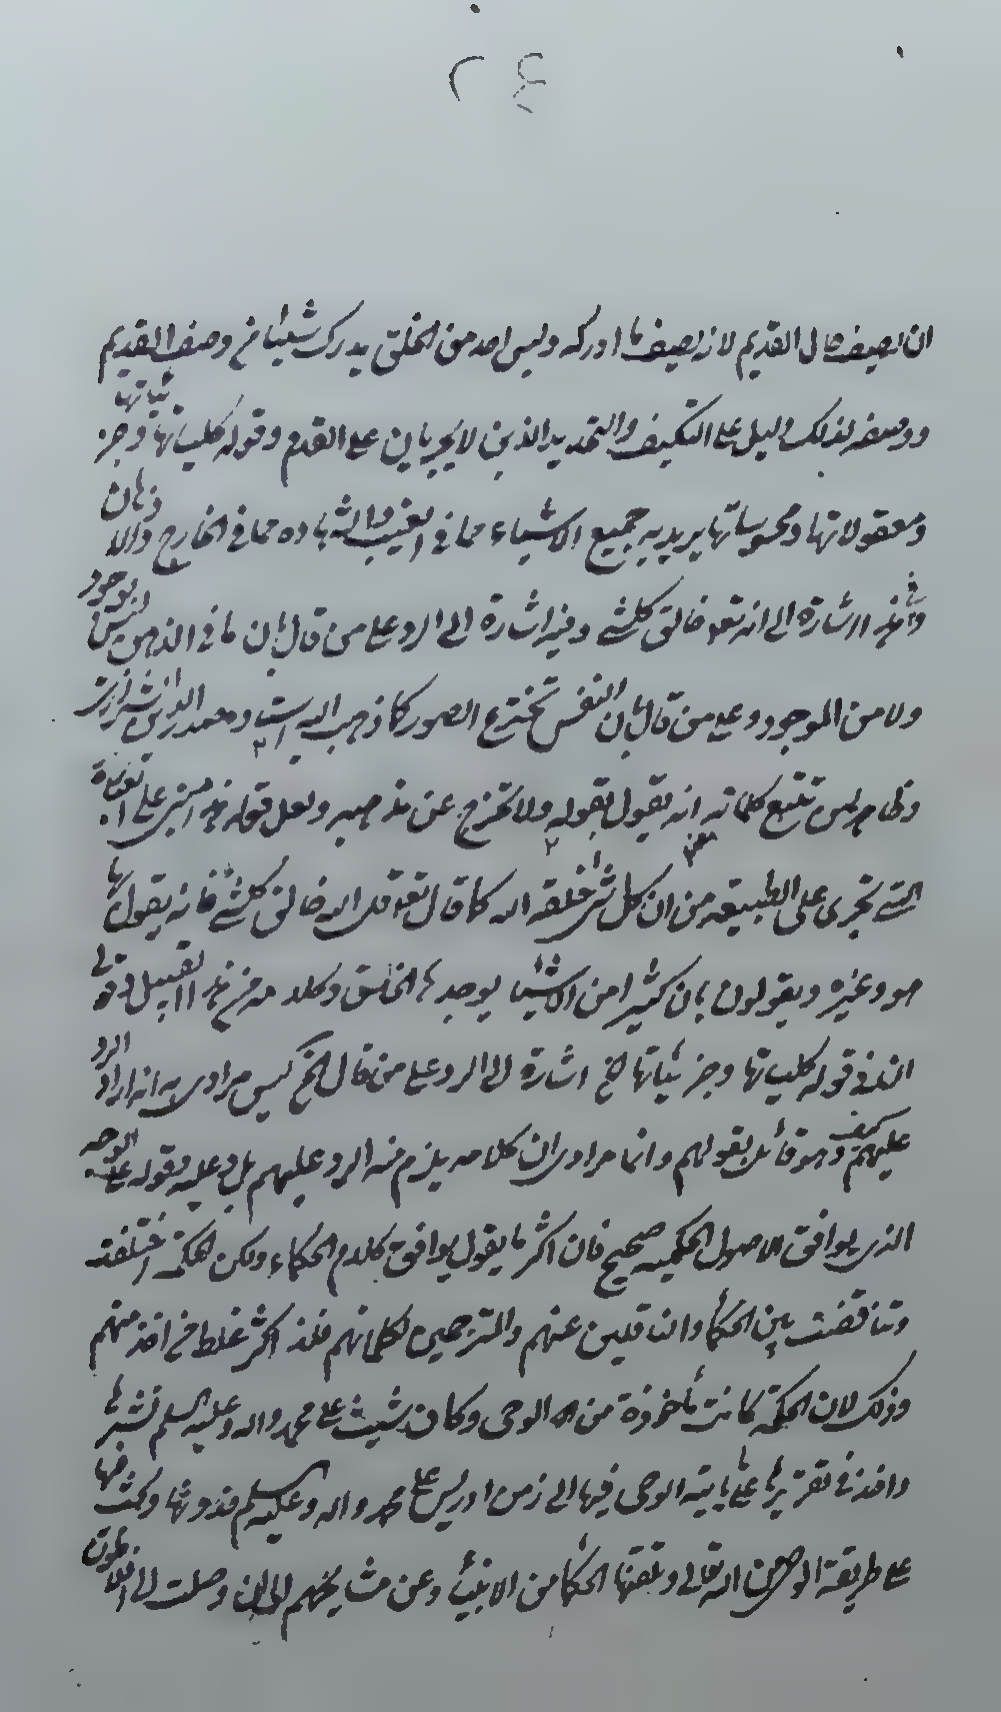 ٢٤
ان يصف حال القديم لانه يصف ما ادركه وليس احد من الخلق يدرك شيئا من وصف القديم
ووصفه بذلك دليل على التكيف والتحديد الذين لا يجريان على القدم وقوله كلياتها وجز ئياتها
ومعقولاتها ومحسوساتها يريد به جميع الاشياء مما في الغيب والشهاده مما في الخارج والاذهان
وفي هذه اشارة الى انه تعو خالق كلشئ وفيه اشارة الى الرد على من قال بان ما في الذهن ليس بوجود
ولا من الموجود وعلى من قال بان النفس تخترع الصور كما ذهب اليه ست ومحمد
وظاهر لمن تتبع كلماته انه يقول بقوله ولا يخرج عن مذهبه ولعل قوله هذا مبنى على
التي تجرى على الطبيعه من ان كل شئ خلقه الله كما قال تعو قل الله خالق كلشئ فانه يقول بها
هو وغيره ويقولون بان كثيرا من الاشياء يوجد ها الخلق وكلامه من هذا القبيل وقولى
ان في قوله كلياتها وجزئياتها الخ اشارة الى الرد على من قال الخ ليس مرادى به انه اراد الرد
عليهم كيف وهو قائل بقولهم وانما مرادى ان كلامه يلزم منه الرد عليهم بل وعليه وقوله على الوجه
الذى يوافق الاصول الحكميه صحيح فان اكثر ما يقول يوافق كلام الحكماء ولكن الحكمة اختلفت
وتناقضت بين الحكماء والناقلين عنهم والمترجمين لكلماتهم فلذا كثر غلط من اخذ منهم
وذلك لان الحكمة كانت مأخوذة من الوحى وكان شيث على محمد واله وعليه السلم نشرها
واخذ في تقريرها على ما يتيه الوحى فيها الى زمن ادريس على محمد واله وعليه السلم فدونها وكثرها
على طريقة الوحى من الله تعالى وتلقتها الحكما من الانبياء وعن مشايخهم الى ان وصلت الى افلاطون